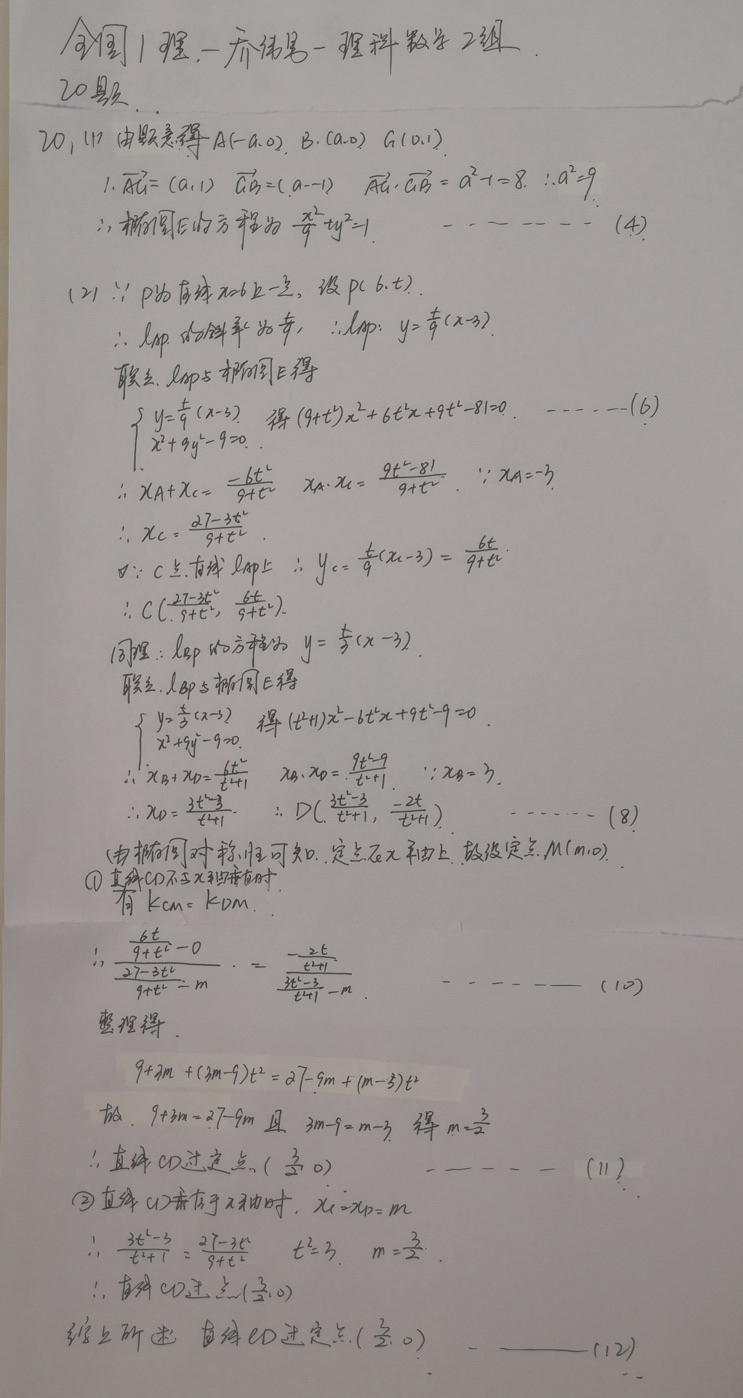 全国1理.一乔伟男一理科数学2组.
20题.
20, (1) 由题意得A(-a.0) B.(a.0) G(0.1)
∴ AG=(a,1) GB=(a.-1) AG·GB=a²-1=8. ∴a²=9
∴椭圆E的方程为 x²/9+y²=1 -------- (4)
(2) ∵ P为直线x=6上一点, 设P(6.t).
∴ lAP 的斜率为t/9, ∴lAP: y=t/9(x-3)
联立.lAP与椭圆E得
{ y=t/9(x-3) x²+9y²-9=0. 得(9+t²)x²+6t²x+9t²-81=0. ------(6)
∴ xA+xC=-6t²/9+t² xA·xC=9t²-81/9+t². ∵xA=-3
∴ xC=27-3t²/9+t².
又∵ C点.在直线lAP上 ∴yC=t/9(xC-3)=6t/9+t².
∴C(27-3t²/9+t², 6t/9+t²).
同理: lBP的方程为 y=t/3(x-3).
联立.lBP与椭圆E得
{ y=t/3(x-3) x²+9y²-9=0. 得(t²+1)x²-6t²x+9t²-9=0.
∴xB+xD=6t²/t²+1 xB·xD=9t²-9/t²+1. ∵xB=3.
∴xD=3t²-3/t²+1. ∴D(3t²-3/t²+1, -2t/t²+1) ------ (8)
由椭圆对称性可知. 定点在x轴上, 故设定点M(m.0)
① 直线CD不与x轴垂直时
有 KCM=KDM.
∴ (6t/9+t² -0)/(27-3t²/9+t² -m) = (-2t/t²+1)/(3t²-3/t²+1 -m) ------ (10)
整理得.
9+3m+(3m-9)t²=27-9m+(m-3)t²
故. 9+3m=27-9m 且 3m-9=m-3 得m=3/2
∴直线CD过定点(3/2.0) ------ (11)
② 直线CD垂直于x轴时, xC=xD=m
∴ 3t²-3/t²+1=27-3t²/9+t² t²=3, m=3/2.
∴直线CD过点(3/2.0)
综上所述 直线CD过定点(3/2.0) - ------(12)